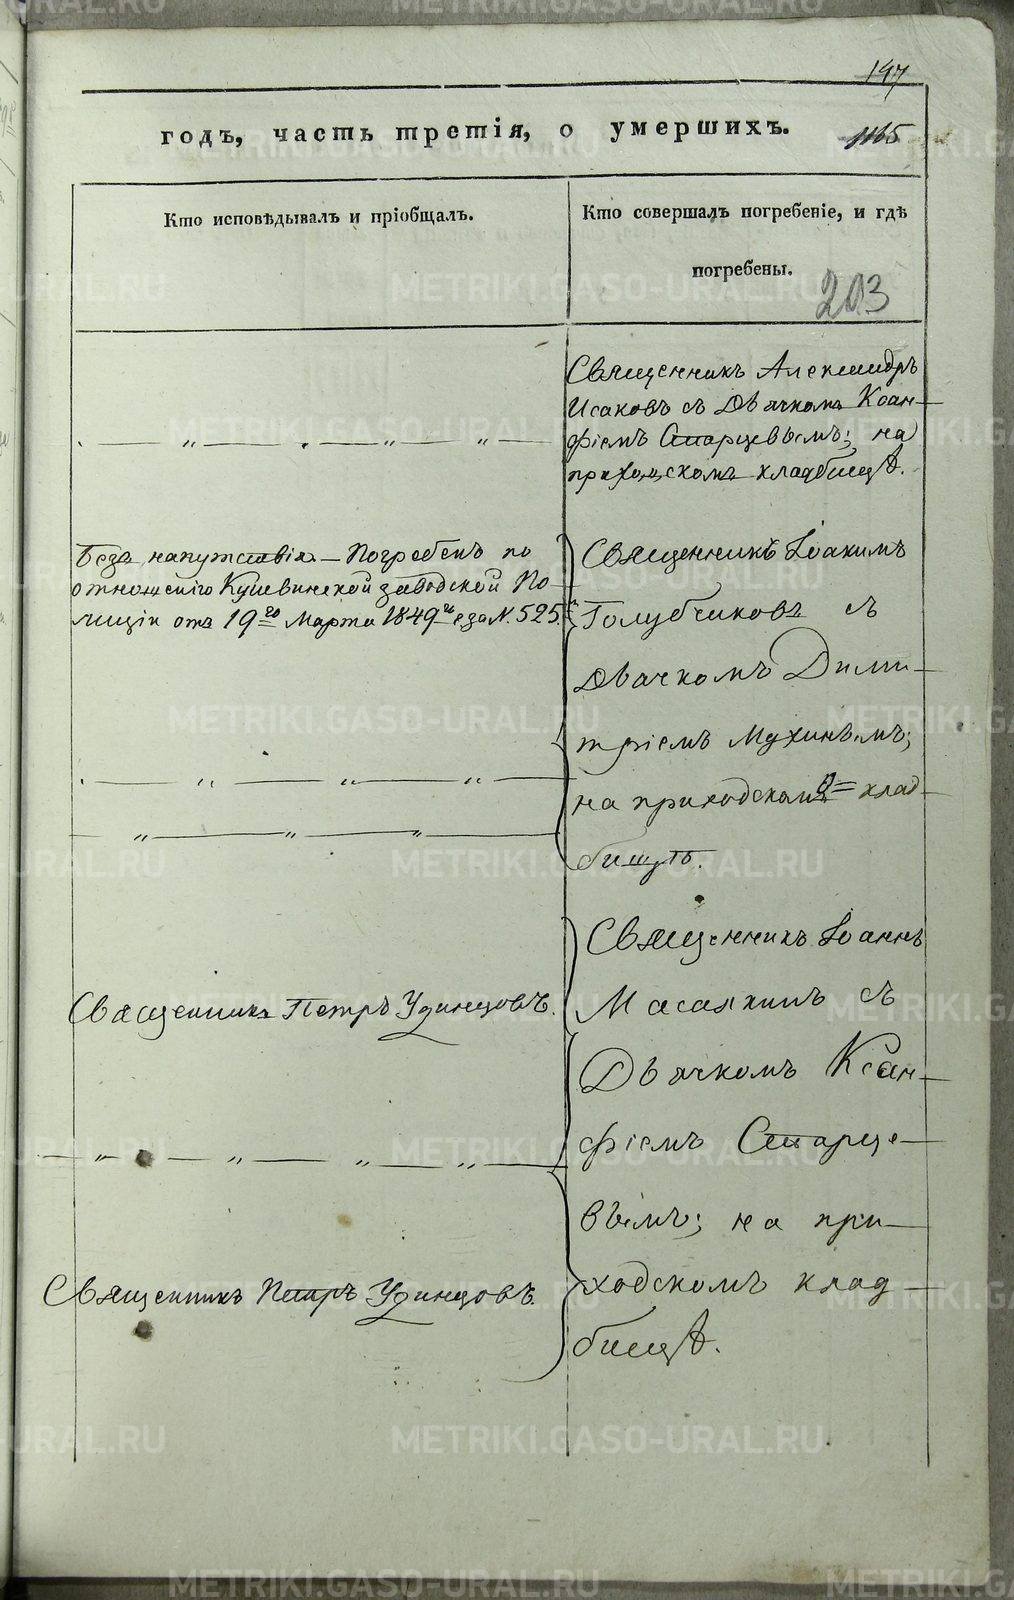 147
годъ, часть третія, о умершихъ.
1165
Кто исповѣдывалъ и пріобщалъ.
Кто совершалъ погребеніе, и гдѣ
погребены.
203
Священникъ Александръ
Исаковъ съ Дьячкомъ Ксан-
фіемъ Старцевымъ; на
приходскомъ кладбищѣ.
Безъ напутствія. — Погребенъ по
отношенію Кушвинской заводской По-
лиціи отъ 19го Марта 1849го за N. 525.
Священникъ Іоакимъ
Голубчиковъ съ
Дьячкомъ Дими-
тріемъ Мухинымъ;
на приходскомъ клад-
бищѣ.
Священникъ Петръ Удинцовъ.
Священникъ Іоаннъ
Масалкинъ съ
Дьячкомъ Ксан-
фіемъ Старце-
вымъ; на при-
ходскомъ клад-
бищѣ.
Священникъ Петръ Удинцовъ.
METRIKI.GASO-URAL.RU